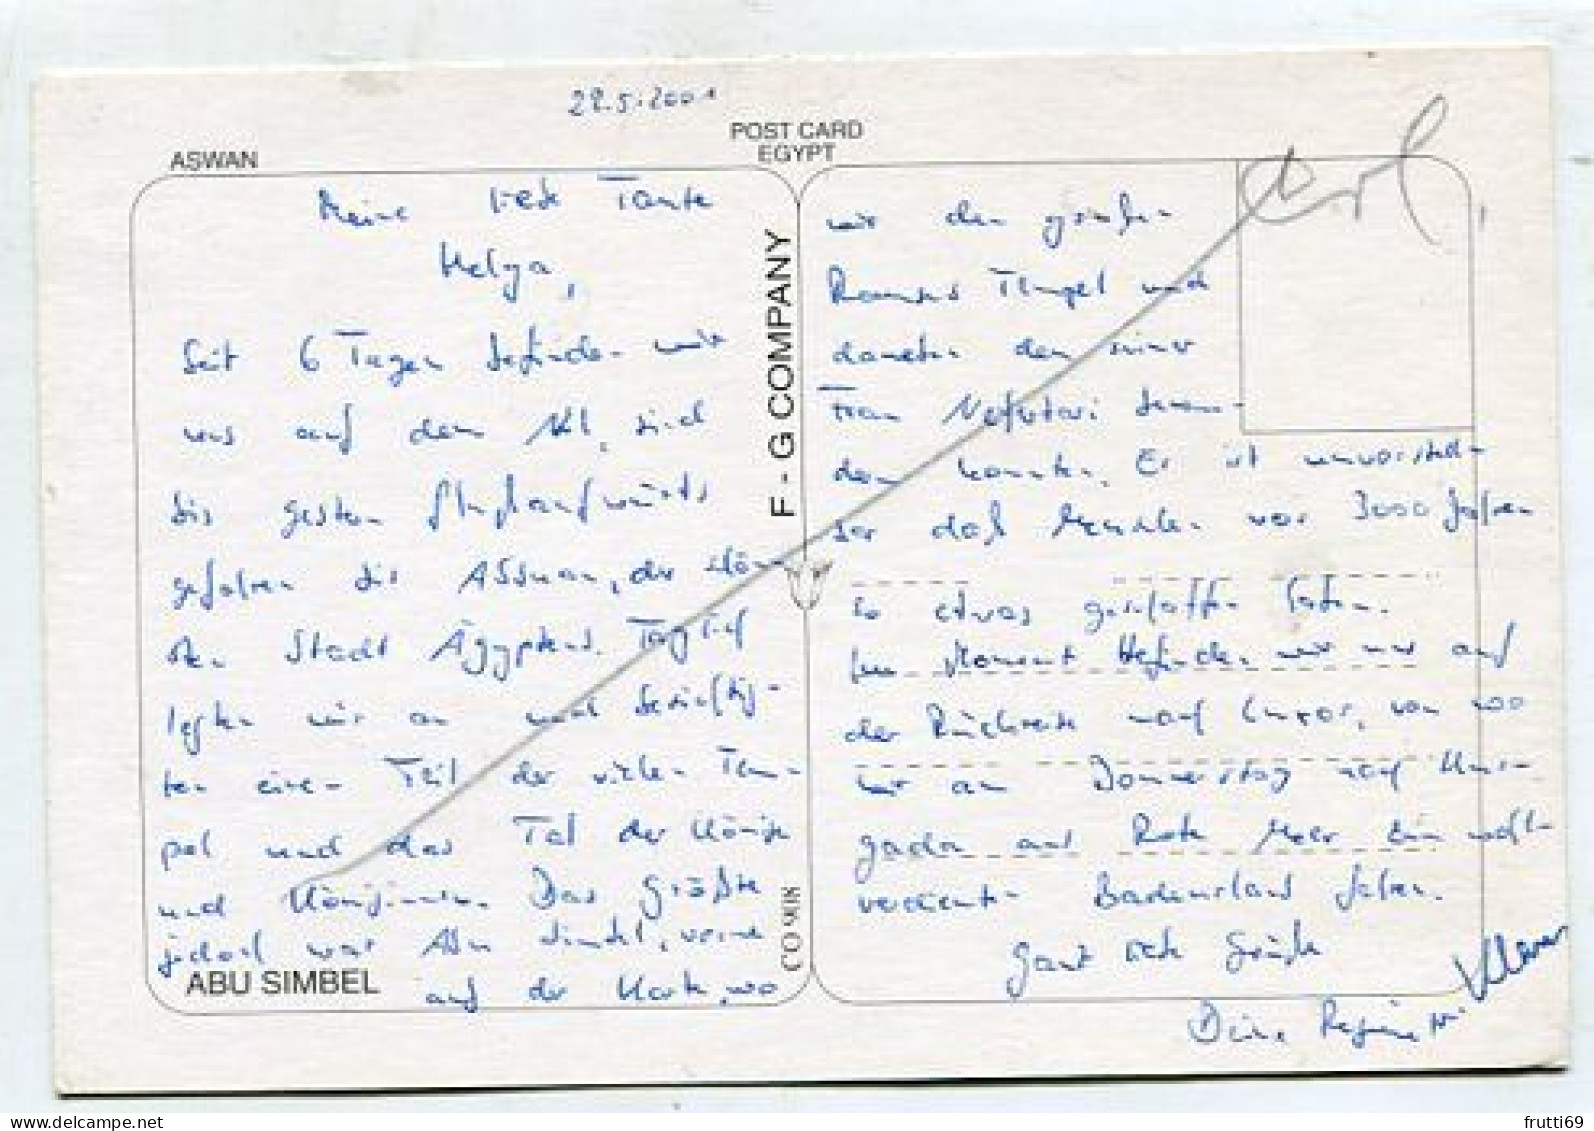 29.5.2001
POST CARD
EGYPT
ASWAN
Meine liebe Tante
Helga,
Seit 6 Tagen befinden wir
uns auf dem Nil, sind
bis gestern flußaufwärts
gefahren bis ASSuan, der schön
sten Stadt Ägyptens. Täglich
legten wir an und besichtig-
ten einen Teil der vielen Tem-
pel und das Tal der Könige
und Königinnen. Das Größte
jedoch war Abu Simbel, vorne
auf der Karte, wo
ABU SIMBEL
F - G COMPANY
CO 908
wir den großen
Ramses Tempel und
daneben den seiner
Frau Nefertari bewun-
dern konnten. Es ist unvorstell-
bar daß Menschen vor 3000 Jahren
so etwas geschaffen haben.
Im Moment befinden wir uns auf
der Rückreise nach Luxor, von wo
wir am Donnerstag nach Hur-
gada ans Rote Meer zum wohl-
verdienten Badeurlaub fahren.
Ganz liebe Grüße
Deine Regine +
Klaus
frutti69